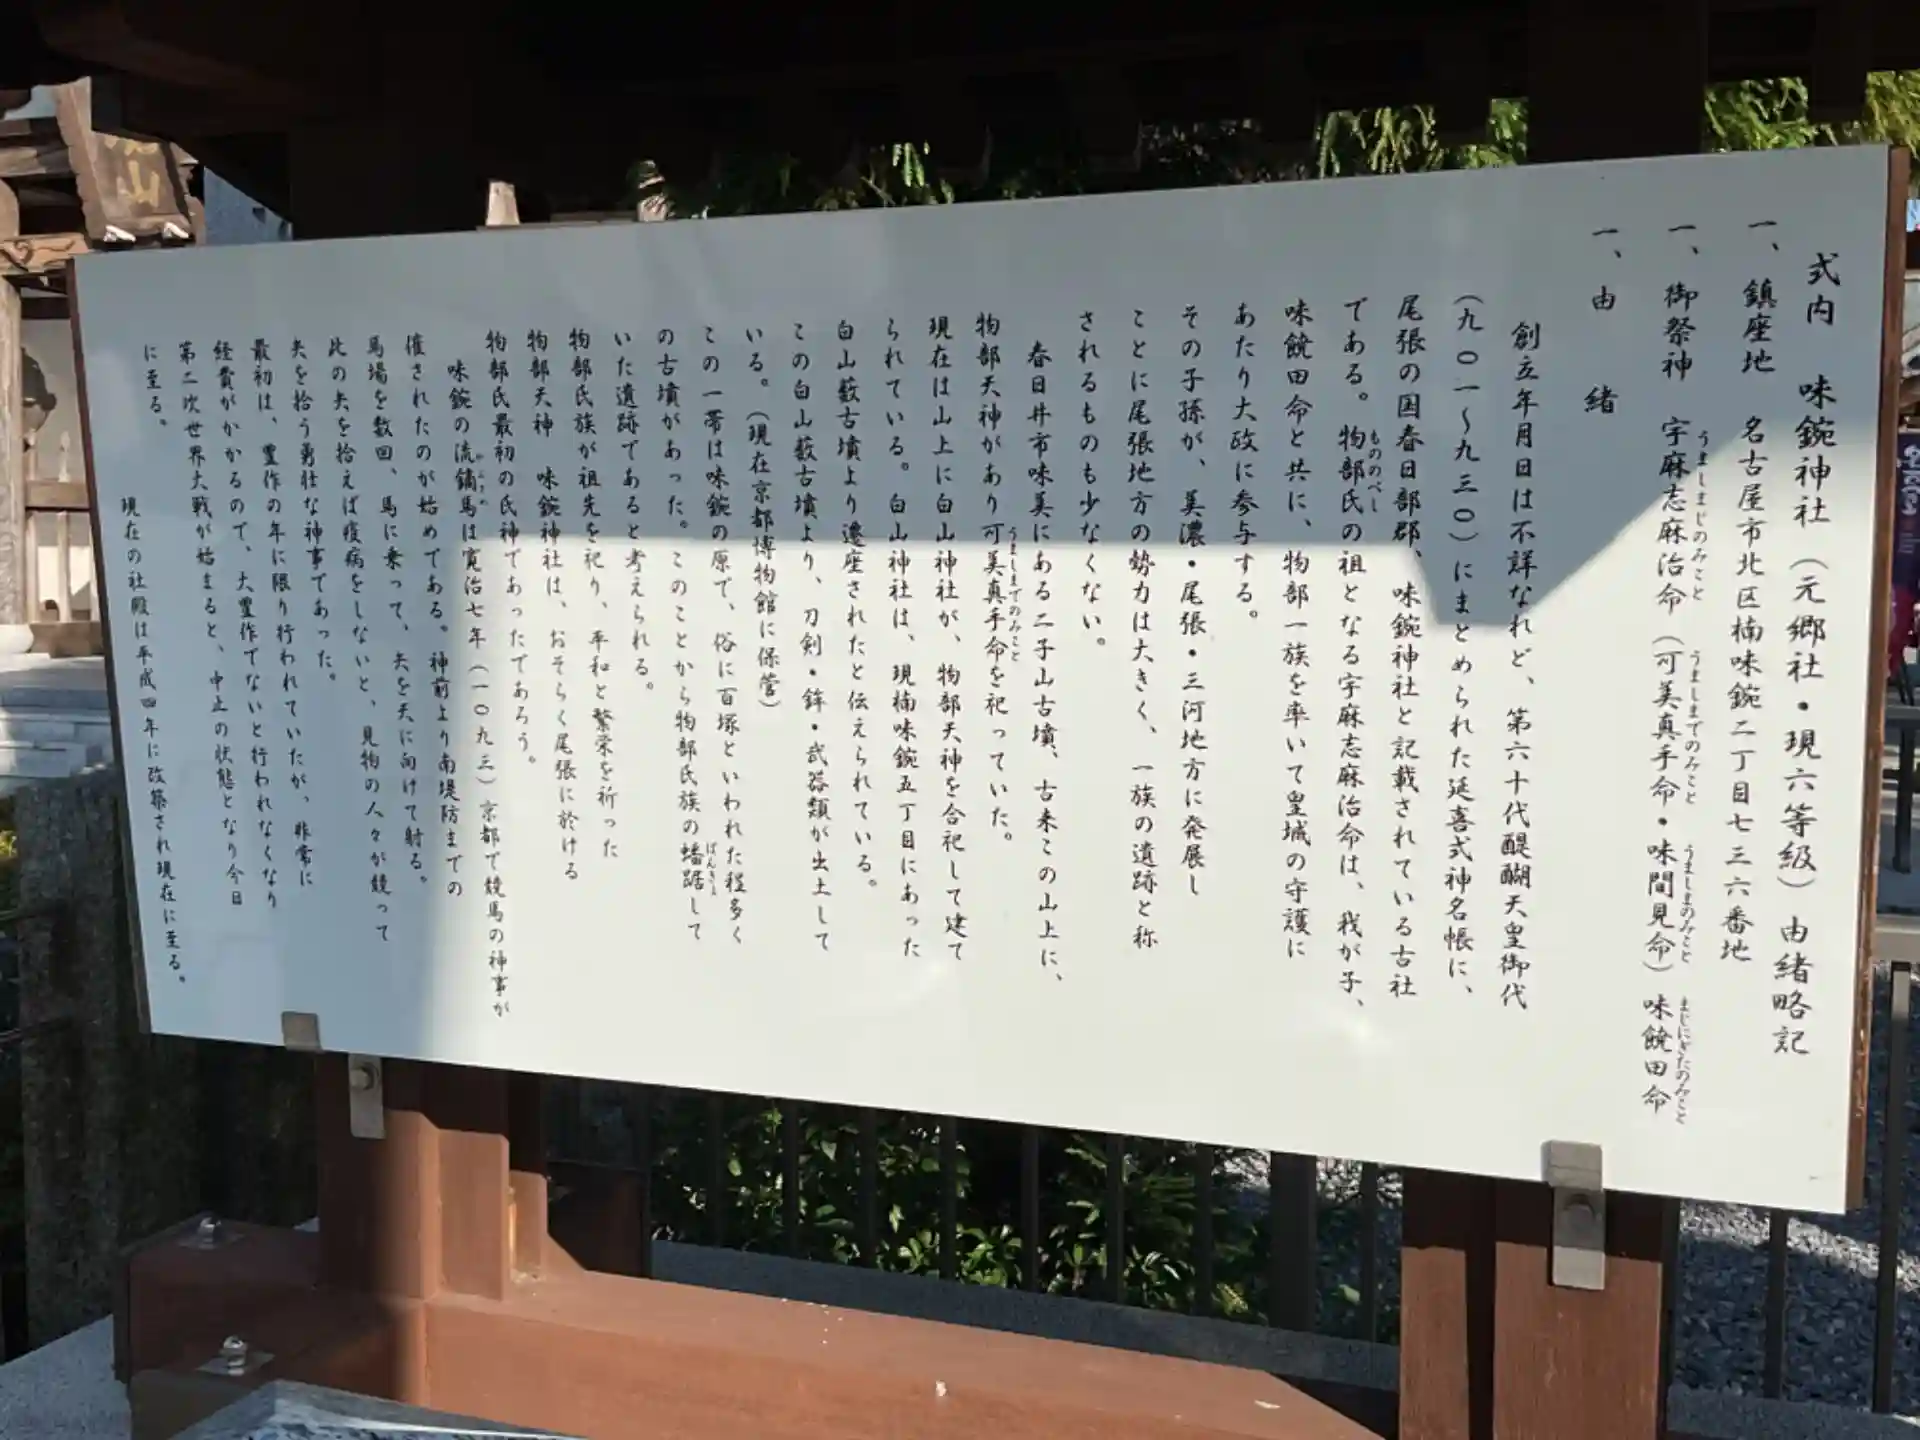 式内 味鋺神社（元郷社・現六等級）由緒略記
一、鎮座地 名古屋市北区楠味鋺二丁目七三六番地
一、御祭神 宇麻志麻治命（可美真手命・味間見命）味饒田命
うましまじのみこと うましまでのみこと うましまのみこと まじにぎたのみこと
一、由 緒
創立年月日は不詳なれど、第六十代醍醐天皇御代
（九〇一〜九三〇）にまとめられた延喜式神名帳に、
尾張の国春日部郡、味鋺神社と記載されている古社
である。物部氏の祖となる宇麻志麻治命は、我が子、
もののべし
味饒田命と共に、物部一族を率いて皇城の守護に
あたり大政に参与する。
その子孫が、美濃・尾張・三河地方に発展し
ことに尾張地方の勢力は大きく、一族の遺跡と称
されるものも少なくない。
春日井市味美にある二子山古墳、古来この山上に、
物部天神があり可美真手命を祀っていた。
うましまでのみこと
現在は山上に白山神社が、物部天神を合祀して建て
られている。白山神社は、現楠味鋺五丁目にあった
白山藪古墳より遷座されたと伝えられている。
この白山藪古墳より、刀剣・鉾・武器類が出土して
いる。（現在京都博物館に保管）
この一帯は味鋺の原で、俗に百塚といわれた程多く
の古墳があった。このことから物部氏族の蟠踞して
ばんきょ
いた遺跡であると考えられる。
物部氏族が祖先を祀り、平和と繁栄を祈った
物部天神 味鋺神社は、おそらく尾張に於ける
物部氏最初の氏神であったであろう。
味鋺の流鏑馬は寛治七年（一〇九三）京都で競馬の神事が
催されたのが始めである。神前より南堤防までの
馬場を数回、馬に乗って、矢を天に向けて射る。
此の矢を拾えば疫病をしないと、見物の人々が競って
矢を拾う勇壮な神事であった。
最初は、豊作の年に限り行われていたが、非常に
経費がかかるので、大豊作でないと行われなくなり
第二次世界大戦が始まると、中止の状態となり今日
に至る。
現在の社殿は平成四年に改築され現在に至る。
山